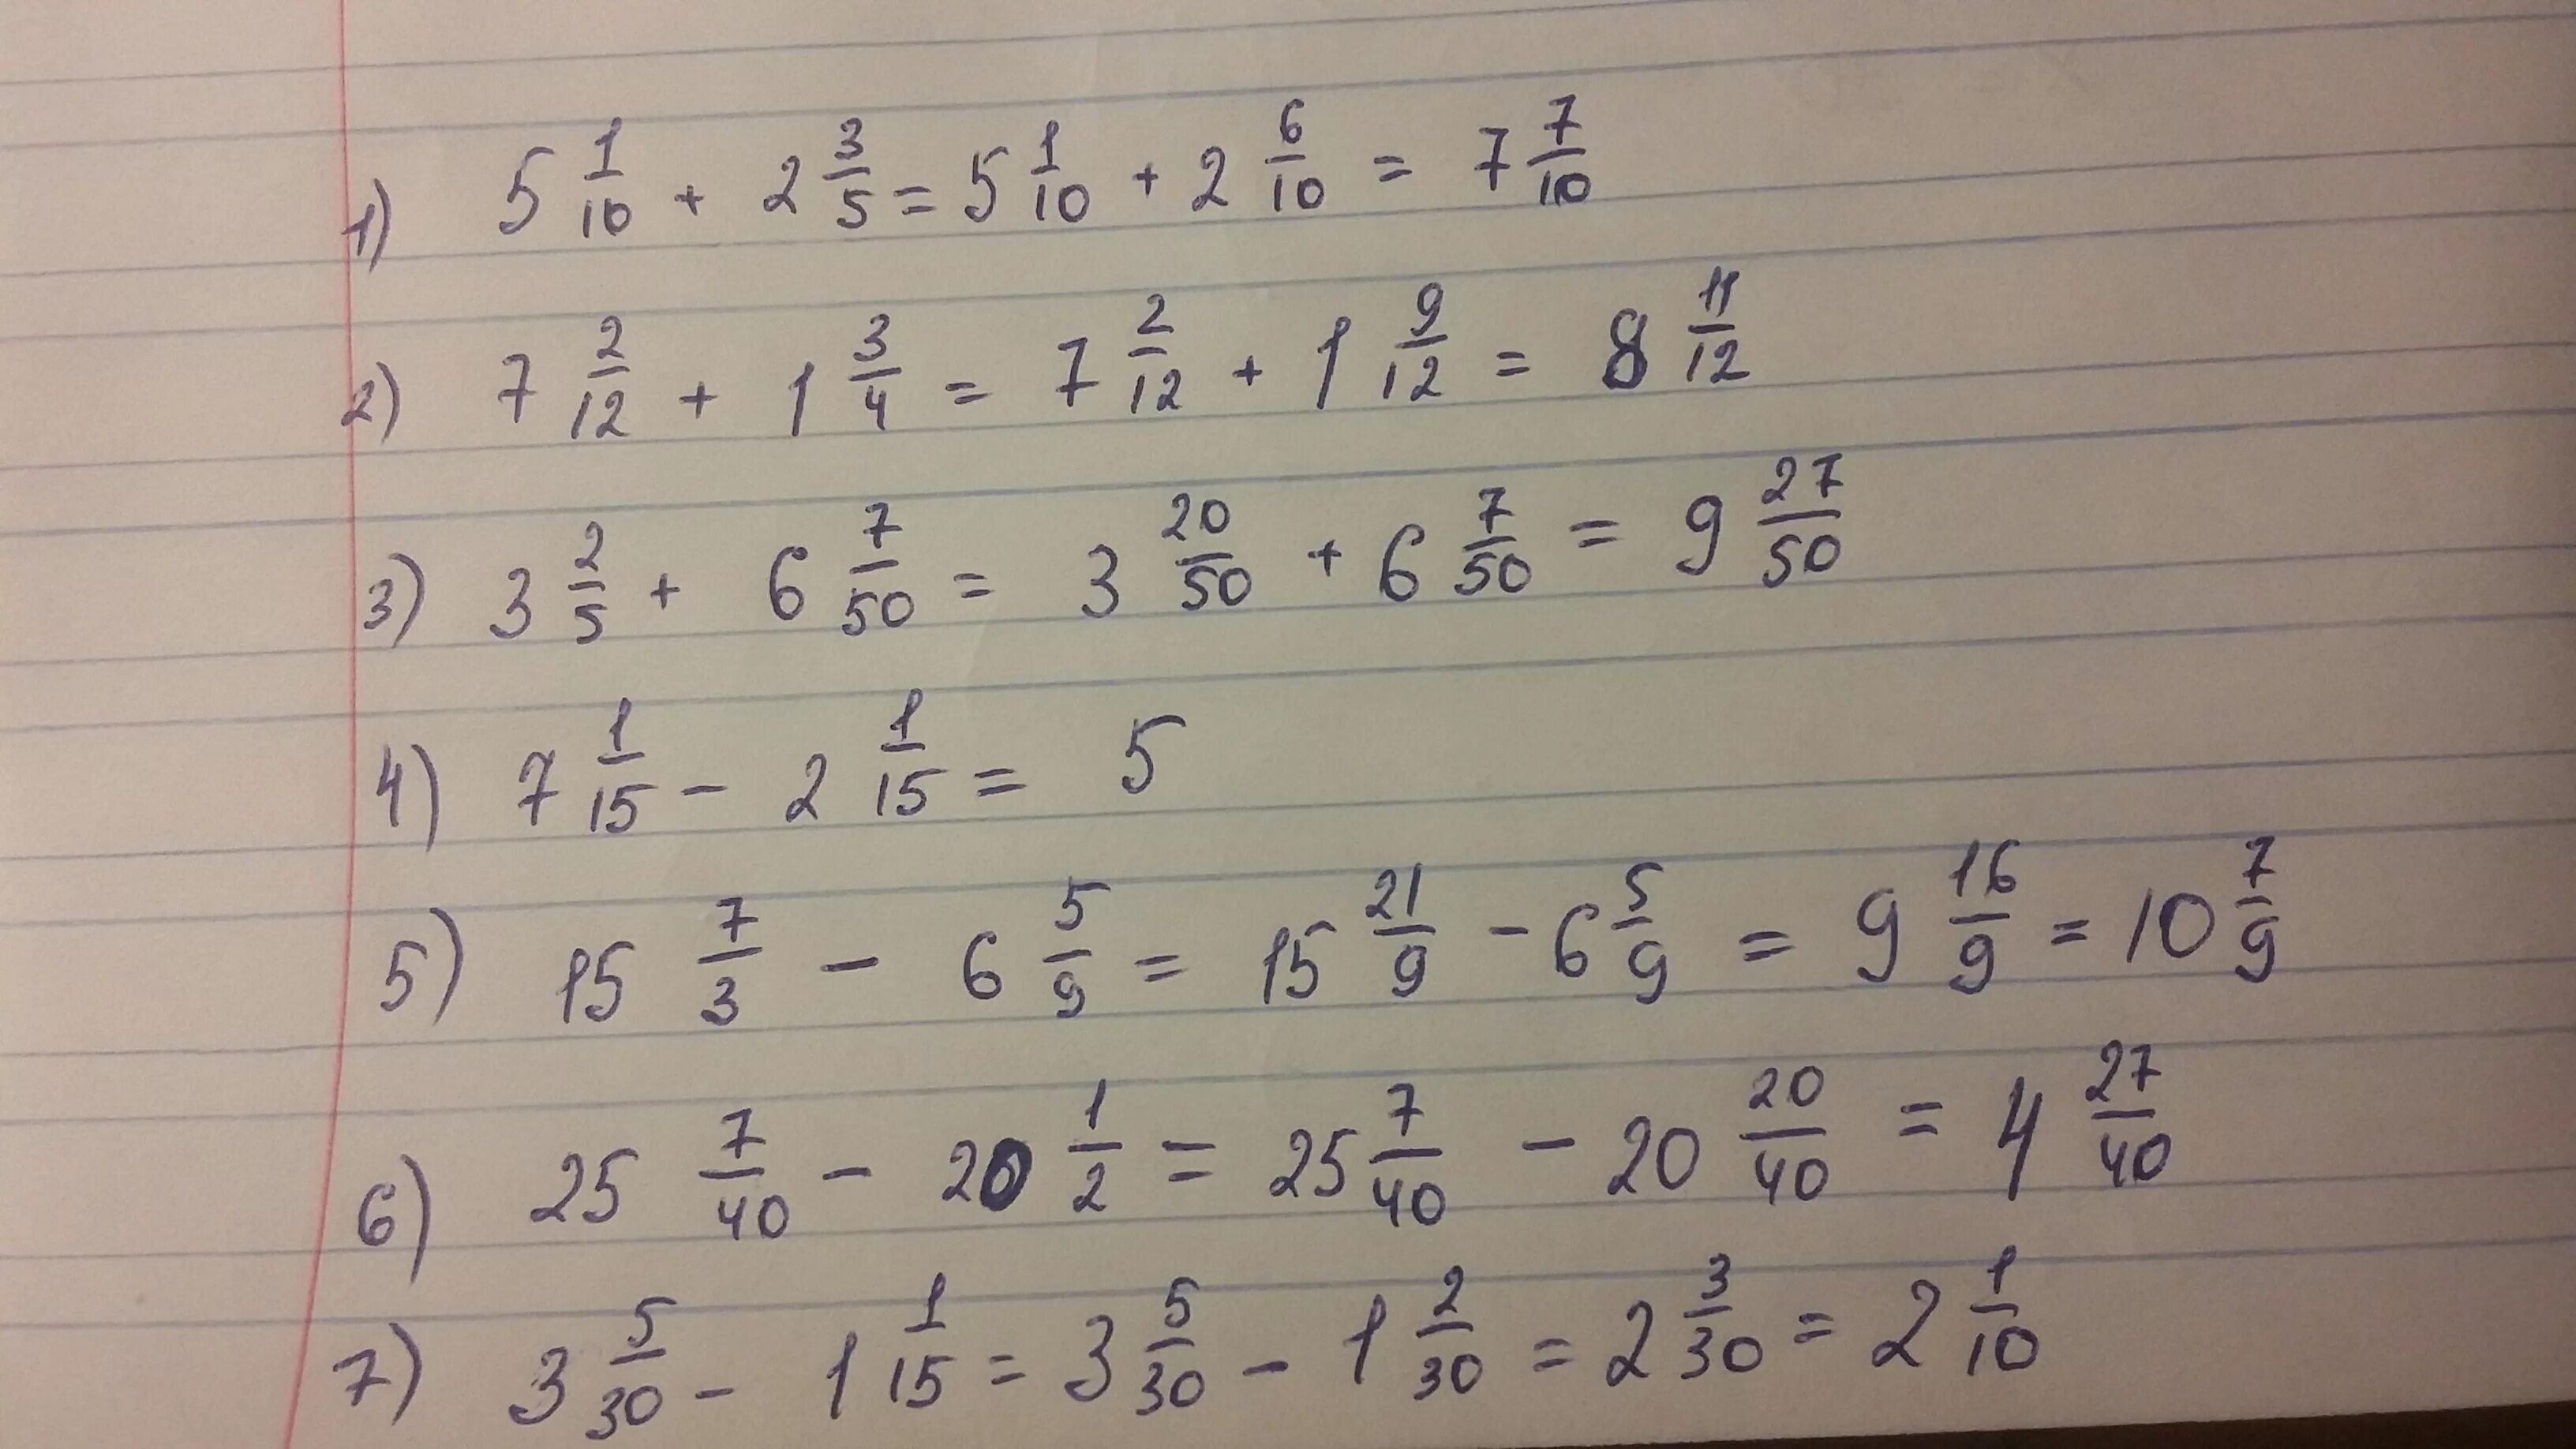 1) 5 1/10 + 2 3/5 = 5 1/10 + 2 6/10 = 7 7/10
2) 7 2/12 + 1 3/4 = 7 2/12 + 1 9/12 = 8 11/12
3) 3 2/5 + 6 7/50 = 3 20/50 + 6 7/50 = 9 27/50
4) 7 1/15 - 2 1/15 = 5
5) 15 7/3 - 6 5/9 = 15 21/9 - 6 5/9 = 9 16/9 = 10 7/9
6) 25 7/40 - 20 1/2 = 25 7/40 - 20 20/40 = 4 27/40
7) 3 5/30 - 1 1/15 = 3 5/30 - 1 2/30 = 2 3/30 = 2 1/10